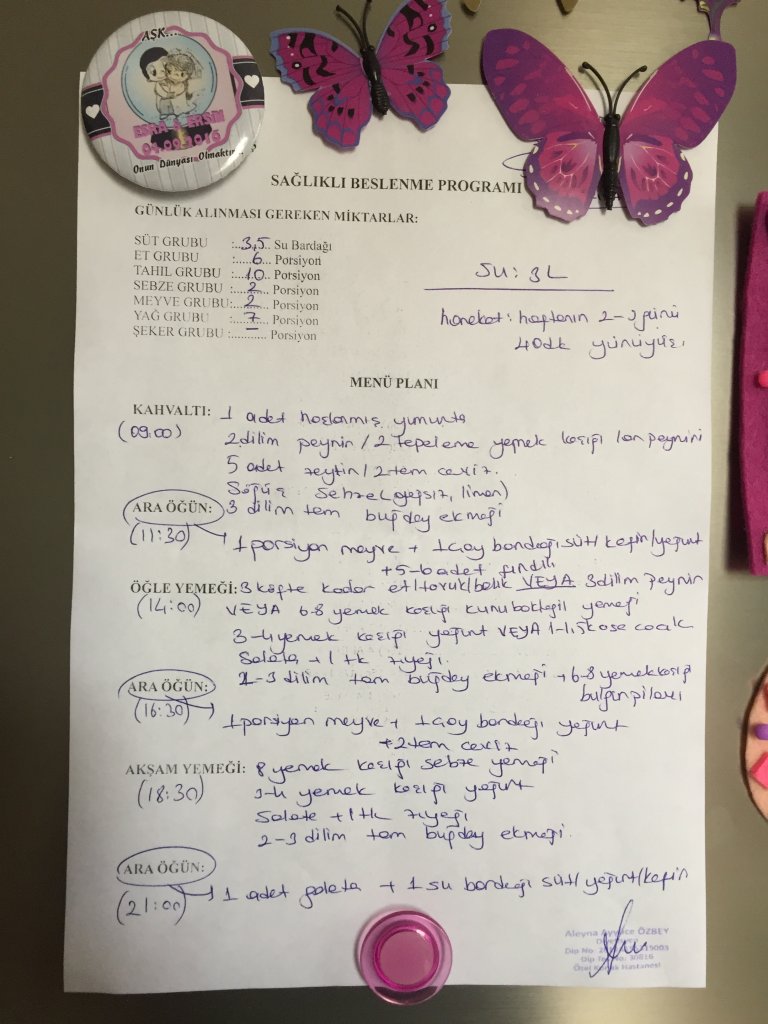 AŞK...
ESRA & ERSİN
04.09.2016
Onun Dünyası Olmaktır
SAĞLIKLI BESLENME PROGRAMI
GÜNLÜK ALINMASI GEREKEN MİKTARLAR:
SÜT GRUBU :..3,5.. Su Bardağı
ET GRUBU :.....6.... Porsiyon
TAHIL GRUBU :...10.... Porsiyon
SEBZE GRUBU :....2.... Porsiyon
MEYVE GRUBU:....2.... Porsiyon
YAĞ GRUBU :....7.... Porsiyon
ŞEKER GRUBU :....–.... Porsiyon
SU: 3L
hareket: haftanın 2-3 günü
40dk yürüyüş.
MENÜ PLANI
KAHVALTI: 1 adet haşlanmış yumurta
(09:00) 2 dilim peynir / 2 tepeleme yemek kaşığı lor peyniri
5 adet zeytin / 2 tam ceviz.
Söğüş sebze (yağsız, limon)
3 dilim tam buğday ekmeği
ARA ÖĞÜN:
(11:30) 1 porsiyon meyve + 1 çay bardağı süt/kefir/yoğurt
+ 5-6 adet fındık
ÖĞLE YEMEĞİ: 3 köfte kadar et/tavuk/balık VEYA 3 dilim peynir
(14:00) VEYA 6-8 yemek kaşığı kurubaklagil yemeği
3-4 yemek kaşığı yoğurt VEYA 1-1,5 kase cacık
Salata + 1 tk z.yağı.
2-3 dilim tam buğday ekmeği + 6-8 yemek kaşığı
bulgur pilavı
ARA ÖĞÜN:
(16:30) 1 porsiyon meyve + 1 çay bardağı yoğurt
+ 2 tam ceviz
AKŞAM YEMEĞİ: 8 yemek kaşığı sebze yemeği
(18:30) 3-4 yemek kaşığı yoğurt
Salata + 1 tk z.yağı
2-3 dilim tam buğday ekmeği.
ARA ÖĞÜN:
(21:00) 1 adet galeta + 1 su bardağı süt/yoğurt/kefir
ÖZBEY
Dip No.
Dip No: 30816
Özel Hastanesi